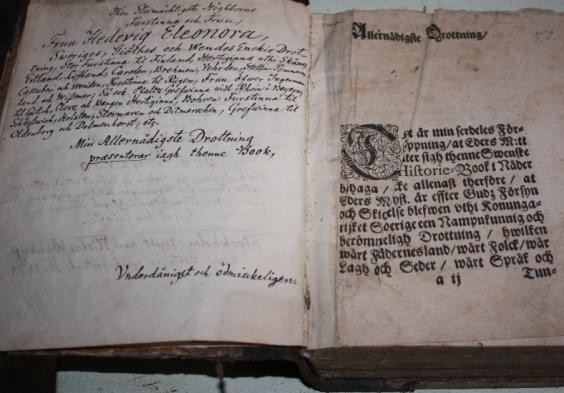 Then Stormächtigste Höghborne
Furstinna och Fruu,
Fruu Hedevig Eleonora,
Sveriges, Giöthes och Wendes Enckie Drot-
tning, Stor Furstinna til Finland, Hertiginna uthi Skåne,
Estland, Lyfland, Carelen, Brehmen, Vehrden, Stettin-Pommern,
Cassuben och Wenden, Furstinna til Rügen, Fruu öfwer Ingerman-
land och Wismar; Så ock Pfaltz-Grefwinna widh Rhein i Beyern,
til Gülich, Cleve och Bergen Hertiginna, Bohren Furstinna til
Schleswich, Holsten, Stormaren och Ditmarschen, Grefwinna til
Oldenborg och Delmenhorst, etc.
Min Allernådigste Drottning
præsenterar iagh thenne Book,
Vnderdånigst och ödmiukeligen.
Allernådigste Drottning/
Thet är min serdeles För-
hoppning/ at Eders M:tt
låter sigh thenne Swenske
Historie-Book i Nåder
behaga/ icke allenast therföre/ at
Eders Myst. är effter Gudz Försyn
och Skickelse blefwen vthi Konunga-
rijket Swerige een Nampnkunnig och
berömmeligh Drottning/ hwilken
wårt Fädernesland/ wårt Folck/ wår
Lagh och Seder/ wårt Språk och
a ij Tun-